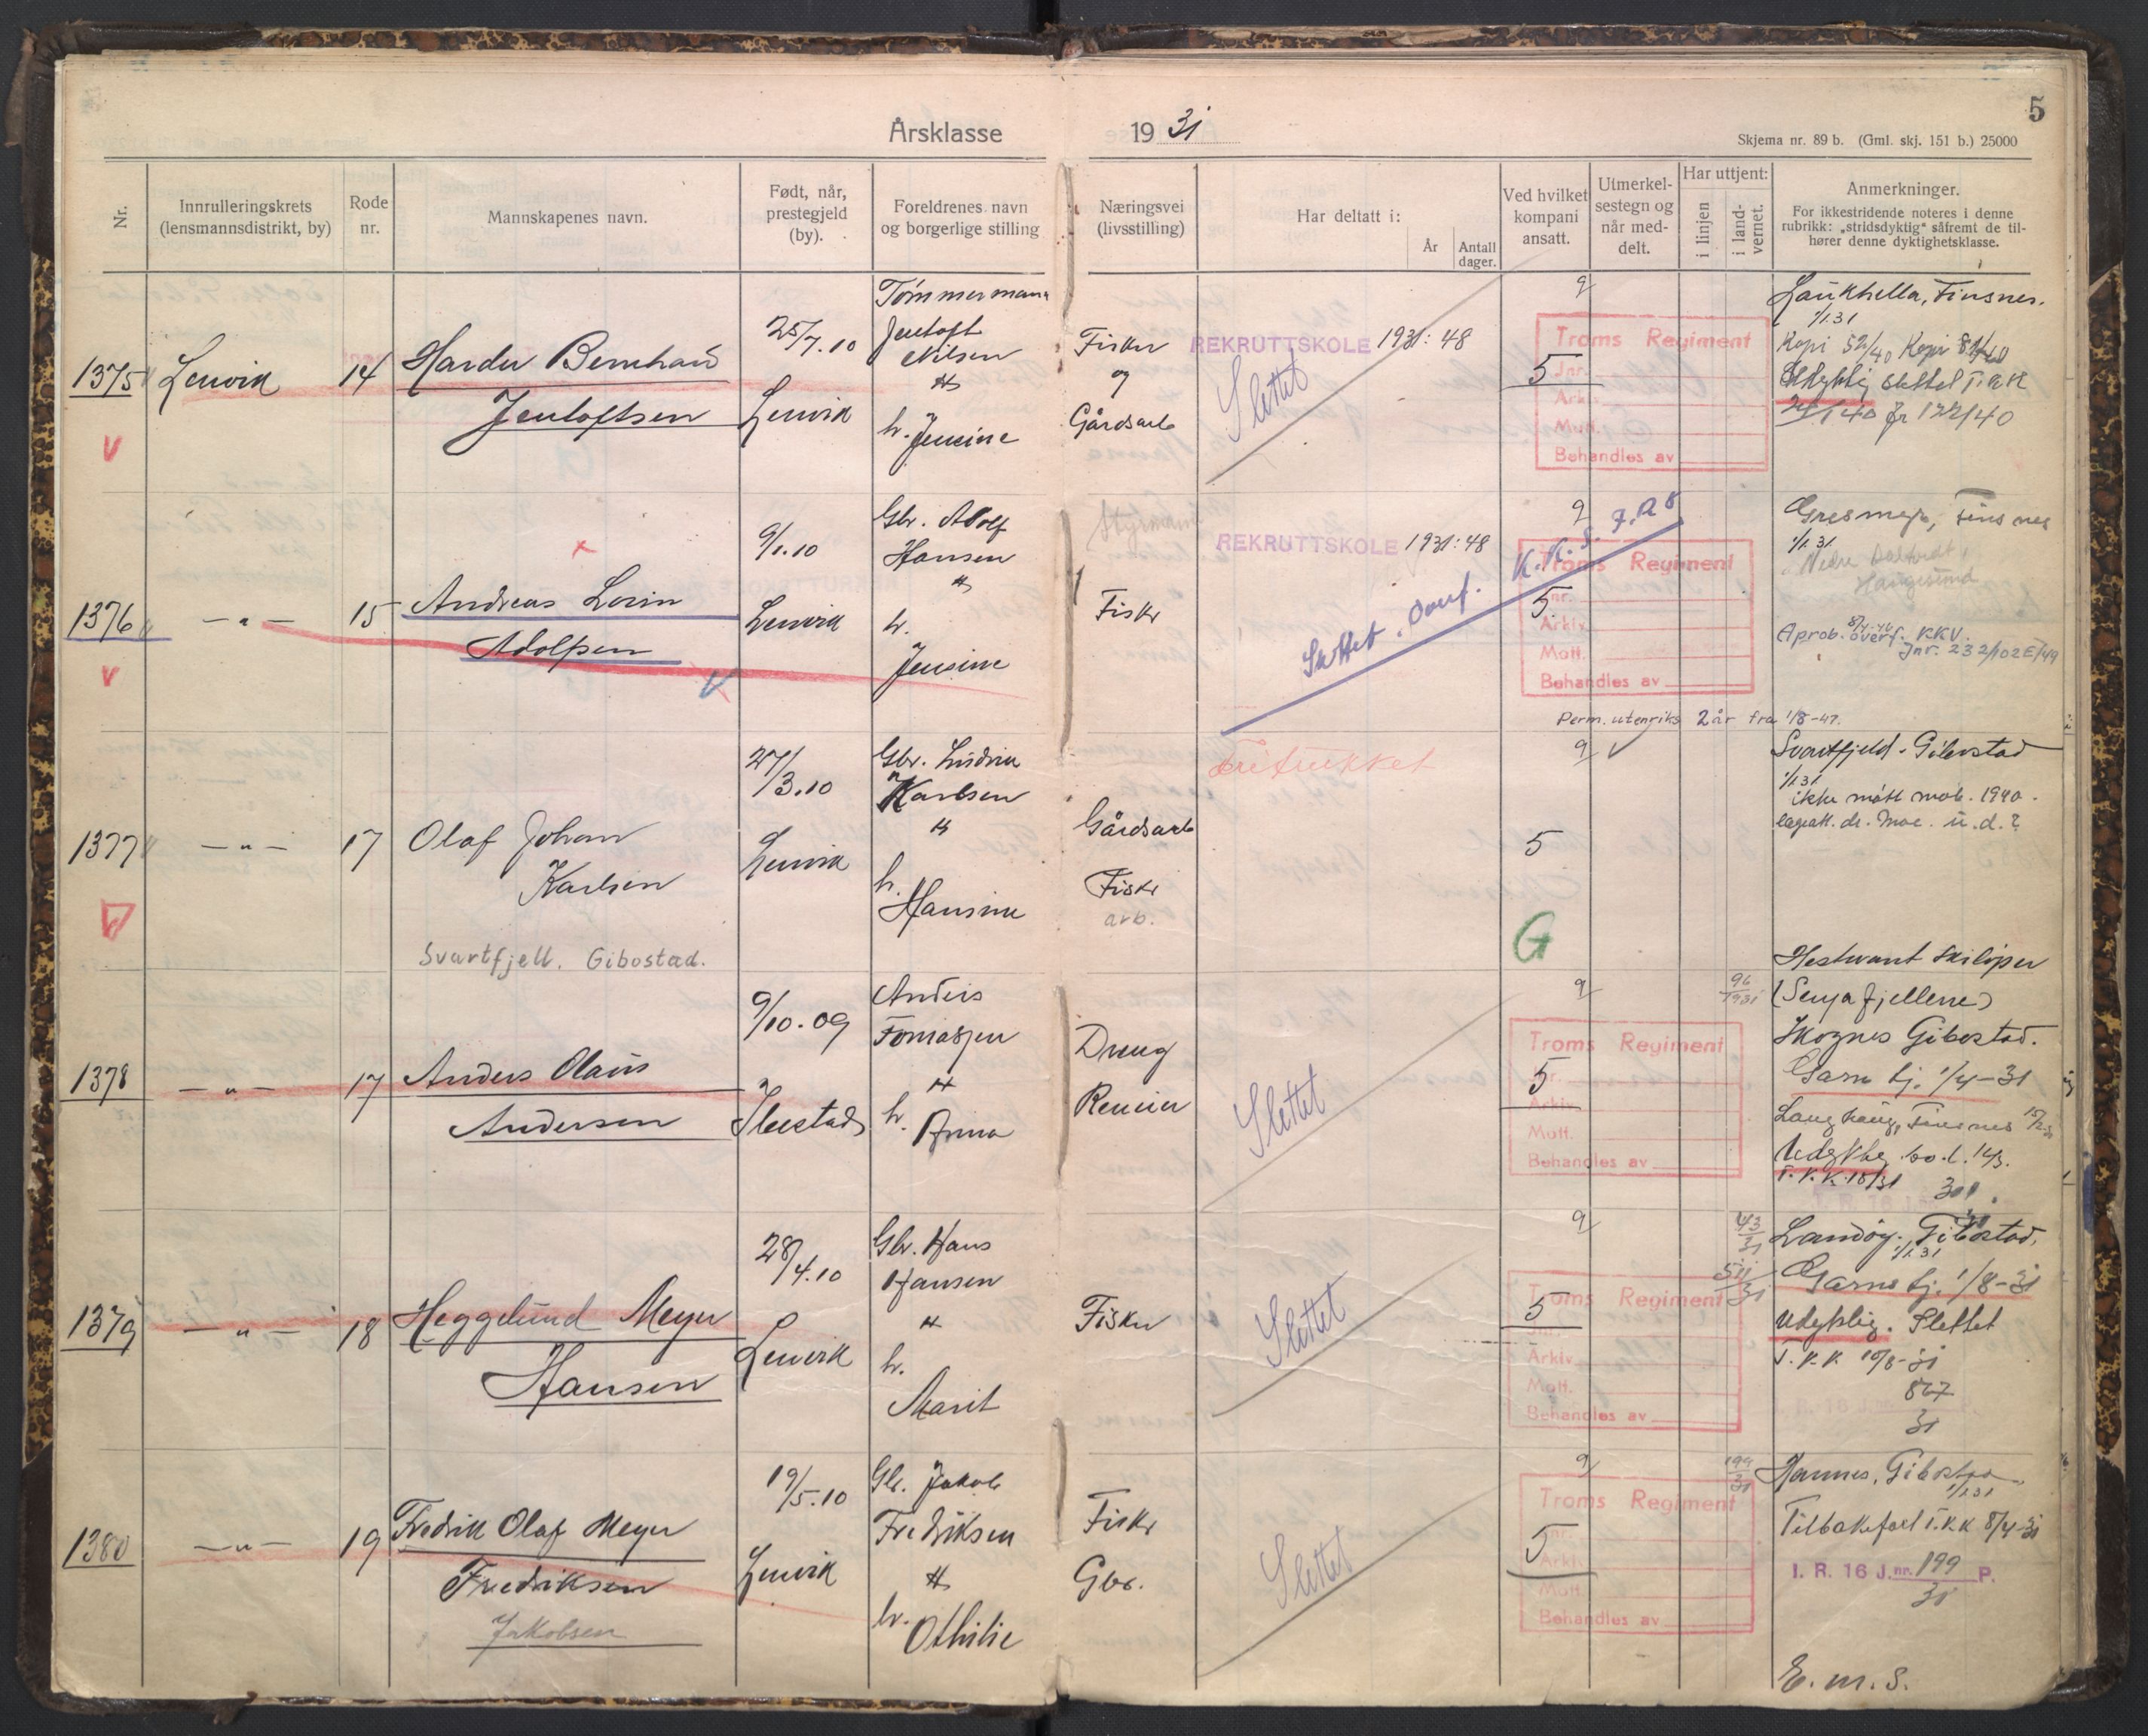 5
Årsklasse 1931
Skjema nr. 89 b. (Gml. skj. 151 b.) 25000
Nr.
Innrulleringskrets
(lensmannsdistrikt, by)
Rode
nr.
Mannskapenes navn.
Født, når,
prestegjeld
(by).
Foreldrenes navn
og borgerlige stilling
Næringsvei
(livsstilling)
Har deltatt i:
År
Antall
dager.
Ved hvilket
kompani
ansatt.
Utmerkel-
sestegn og
når med-
delt.
Har uttjent:
i linjen
i land-
vernet.
Anmerkninger.
For ikkestridende noteres i denne
rubrikk: „stridsdyktig“ såfremt de til-
hører denne dyktighetsklasse.
1375 Lenvik 14
Bernhard
Jentoftsen
25/7.10
Lenvik
Tømmermann
Jentoft
Nilsen
h. Jensine
Fisker
og
Gårdsarb
REKRUTTSKOLE 1931: 48
Slettet
5
Troms Regiment
Jnr.
Arkiv
Mott.
Behandles av
Laukhella, Finsnes.
1/1 31
Kopi 52/40
Udyktig slettet T.K.K
122/40
1376 — " — 15
Andreas Lorin
Adolfsen
9/1.10
Lenvik
Gbr. Adolf
Hansen
h.
Jensine
Fisker
REKRUTTSKOLE 1931: 48
Slettet. Overf. K.K.
5.
Troms Regiment
Jnr.
Arkiv
Mott.
Behandles av
Finsnes
1/1 31
Haugesund
8/4-46
Aprob. overf. KKV.
Jnr. 232/102E/49
Perm. utenriks 2 år fra 1/8-47.
1377 — " — 17
Olaf Johan
Karlsen
Svartfjell. Gibostad.
27/3.10
Lenvik
Gbr. Ludvik
Karlsen
h.
Hansine
Gårdsarb
Fisker
arb.
Fritrukket
5
G
Svartfjeld - Gibostad
1/1 31
ikke møtt mob. 1940.
legeatt. dr. Moe. u.d.?
1378 — " — 17
Anders Olaus
Andersen
9/10.09
Ibestad
Anders
Tomassen
h. Anna
Dreng
Slettet
5
Troms Regiment
Jnr.
Arkiv
Mott.
Behandles av
96/1931
Skiløper
(Senjafjellene)
Skognes Gibostad.
Garn tj. 1/4-31
Finsnes
T.K.K.
1379 — " — 18
Heggelund Meyer
Hansen
28/4.10
Lenvik
Gbr. Hans
Hansen
h.
Marit
Fisker
Slettet
5
Troms Regiment
Jnr.
Arkiv
Mott.
Behandles av
43/31
Gibostad.
1/1 31
Garns tj. 1/8-31
Udyktig. Slettet
T.K.K. 10/8-31
867
31
1380 — " — 19
Fredrik Olaf Meyer
Fredriksen
Jakobsen
19/5.10
Lenvik
Gbr. Jakob
Fredriksen
h.
Othilie
Fisker
Gbr.
Slettet
5
Troms Regiment
Jnr.
Arkiv
Mott.
Behandles av
199/31
Gibostad
1/1 31
Tilbakeført T.K.K 8/4-31
I. R. 16 J.nr. 199 P.
31
E.m.S.